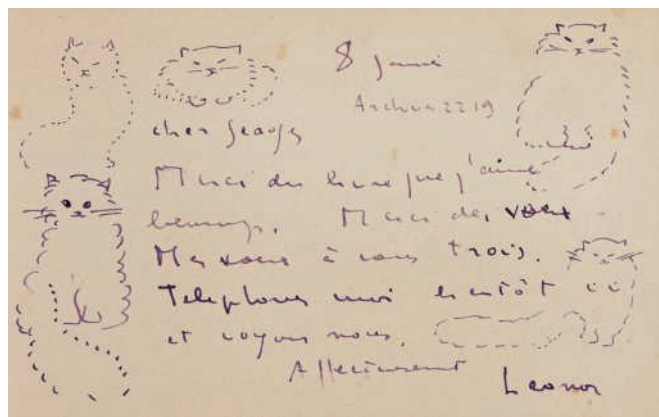 8 janvi
Archives 2219
cher Georges
Merci du livre que j'aime
beaucoup. Merci des vœux
Mes vœux à vous trois.
Telephonez moi bientôt
et voyons nous.
Affectueusement
Leonor